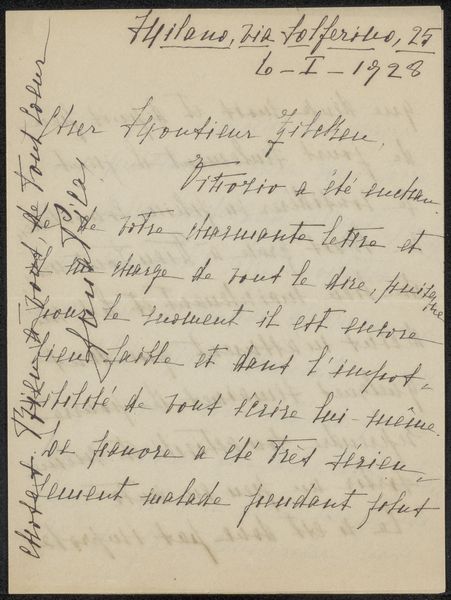 Milano, via Solferino, 25
6 - I - 1928
Cher Monsieur Zilcken,
Vittorio a été enchan-
té de votre charmante lettre et
il me charge de vous le dire, puisque
pour le moment il est encore
bien faible et dans l'impos-
sibilité de vous écrire lui-même.
Le pauvre a été très sérieu-
sement malade pendant plus
Bien à vous, de tout coeur
Pica